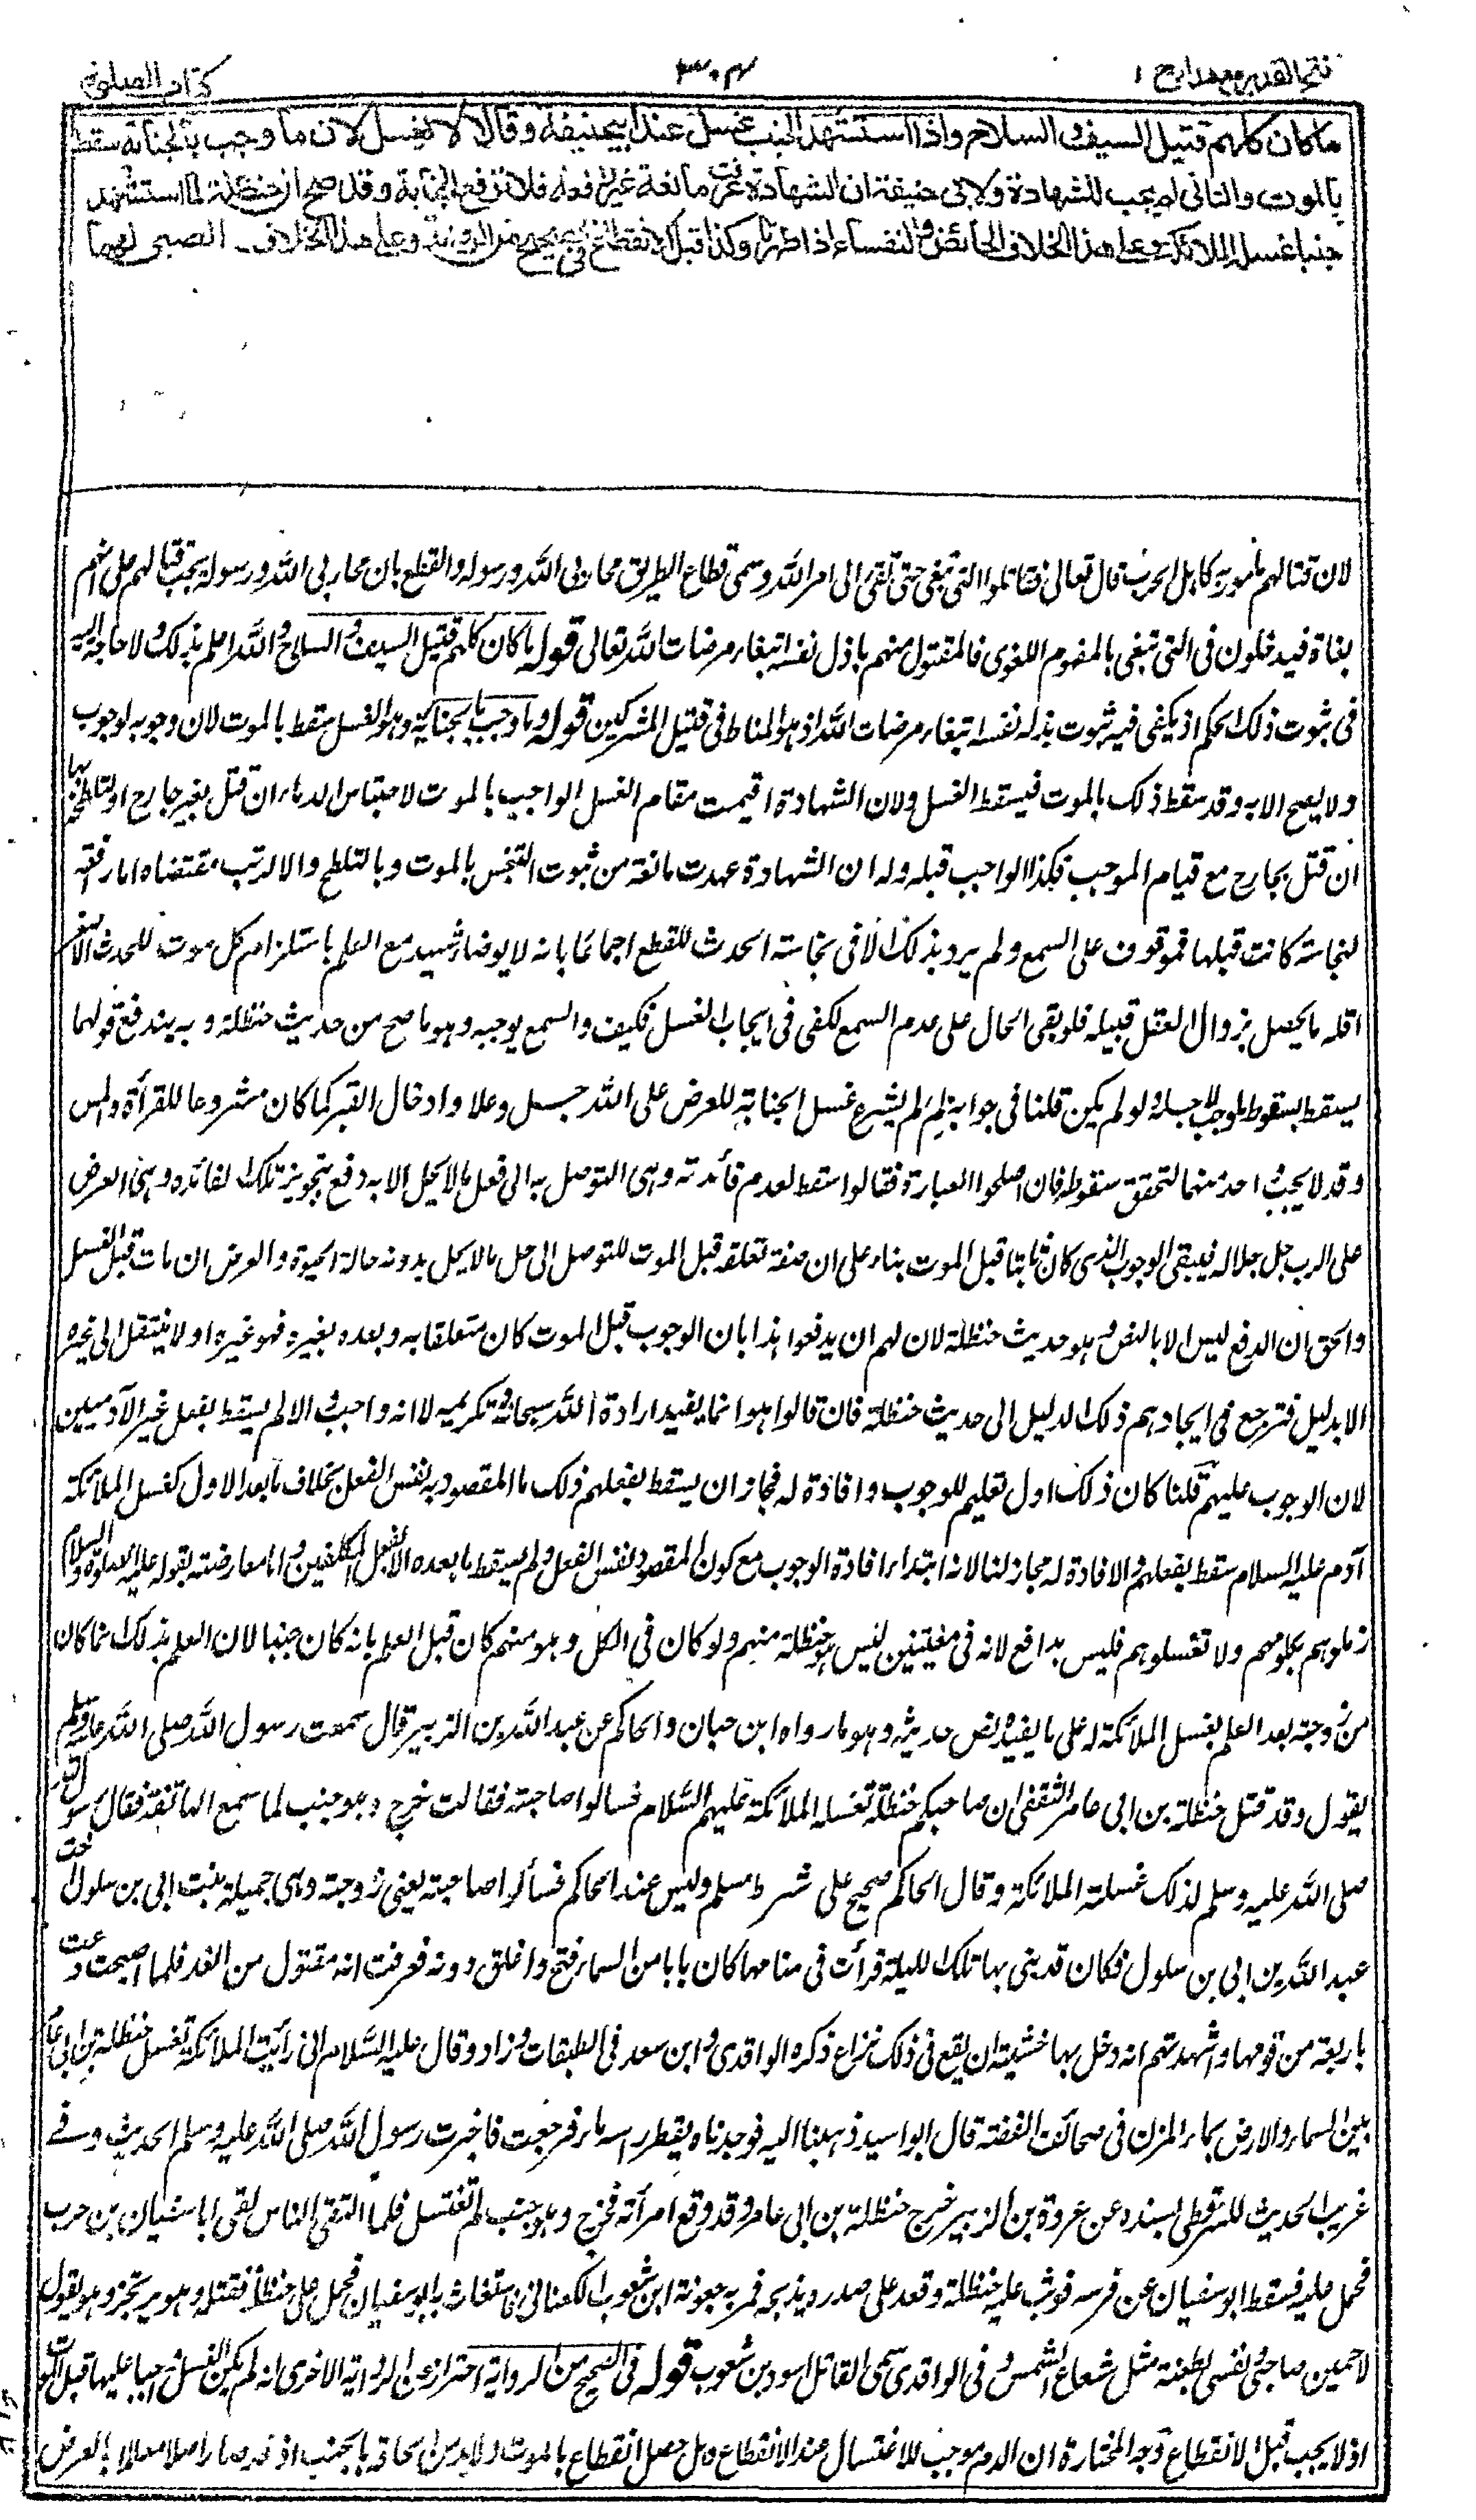 فتح القدير مع هدايه ج ١
٣٠٤
كتاب الصلوة
ما كان كلهم قتيل السيف والسلاح واذا استشهد الجنب غسل عند ابيحنيفة وقالا لا يغسل لان ما وجب بالجنابة سقط
بالموت والثاني لم يجب للشهادة ولابي حنيفة ان الشهادة عرفت مانعة غير رافعة فلا ترفع الجنابة وقد صح ان حنظلة لما استشهد
جنبا غسله الملائكة وعلى هذا الخلاف الحائض والنفساء اذا طهرتا وكذا قبل الانقطاع في الصحيح من الرواية وعلى هذا الخلاف الصبى لهما
لان قتالهم مأمور به كاهل الحرب قال تعالى فقاتلوا التى تبغى حتى تفئ الى امر الله وسمى قطاع الطريق محاربى الله ورسوله والقطع بان محاربى الله ورسوله يجب قتالهم على انهم
بغاة فيدخلون فى التى تبغى بالمفهوم اللغوى فالمقتول منهم باذل نفسه ابتغاء مرضات الله تعالى قوله ما كان كلهم قتيل السيف والسلاح والله اعلم بذلك ولا حاجة اليه
فى ثبوت ذلك الحكم اذ يكفى فيه ثبوت بذله نفسه ابتغاء مرضات الله اذ هو المناط فى قتيل المشركين قوله وما وجب بالجناية وهو الغسل سقط بالموت لان وجوبه لوجوب
ولا يصح الا به وقد سقط ذلك بالموت فيسقط الغسل ولان الشهادة اقيمت مقام الغسل الواجب بالموت لاحتباس الدماء ان قتل بغير جارح او لتلطخه بها
ان قتل بجارح مع قيام الموجب فكذا الواجب قبله وله ان الشهادة عهدت مانعة من ثبوت التنجس بالموت وبالتلطخ والا لرتب مقتضاه اما رفعه
لنجاسة كانت قبلها فموقوف على السمع ولم يرد بذلك الا فى نجاسة الحدث للقطع اجماعا بانه لا يوضأ شهيد مع العلم باستلزام كل موت للحدث الاصغر
اقله ما يحصل بزوال العقل قبيله فلو بقى الحال على عدم السمع لكفى فى ايجاب الغسل فكيف والسمع يوجبه وهو ما صح من حديث حنظلة وبه يندفع قولهما
يسقط بسقوط ما وجب لاجله ولو لم يكن قلنا فى جوابه لِمَ لم يشرع غسل الجنابة للعرض على الله جل وعلا وادخال القبر كما كان مشروعا للقرأة والمس
وقد لا يجب احد منهما لتحقق سقوطه فان اصلحوا العبارة فقالوا سقط لعدم فائدته وهى التوصل به الى فعل ما لا يحل الا به دفع بتجويز تلك الفائدة وهى العرض
على الرب جل جلاله فيبقى الوجوب الذى كان ثابتا قبل الموت بناء على ان صفة تعلقه قبل الموت للتوصل الى حل ما لا يحل بدونه حالة الحيوة والعرض ان مات قبل الغسل
والحق ان الدفع ليس الا بالنص وهو حديث حنظلة لان لهم ان يدفعوا هذا بان الوجوب قبل الموت كان متعلقا به وبعده بغيره فهو غيره اولا ينتقل الى غيره
الا بدليل فترجع فى ايجادهم ذلك الدليل الى حديث حنظلة فان قالوا هو انما يفيد ارادة الله سبحانه تكريمه لا انه واجب والا لم يسقط بفعل غير الآدميين
لان الوجوب عليهم قلنا كان ذلك اول تعليم للوجوب وافادة له فجاز ان يسقط بفعلهم ذلك ما المقصود به نفس الفعل بخلاف ما بعد الاول كغسل الملائكة
آدم عليه السلام سقط بفعلهم والافادة له مجاز لنا لانه ابتداء افادة الوجوب مع كون المقصود نفس الفعل ولم يسقط ما بعده الا بفعل المكلفين واما معارضته بقوله عليه الصلوة والسلام
زملوهم بكلومهم ولا تغسلوهم فليس بدافع لانه فى معينين ليس حنظلة منهم ولو كان فى الكل وهو منهم كان قبل العلم بانه كان جنبا لان العلم بذلك انما كان
من زوجته بعد العلم بغسل الملائكة له على ما يفيده نص حديثه وهو ما رواه ابن حبان والحاكم عن عبد الله بن الزبير قال سمعت رسول الله صلى الله عليه وسلم
يقول وقد قتل حنظلة بن ابى عامر الثقفى ان صاحبكم حنظلة تغسله الملائكة عليهم السلام فسألوا صاحبته فقالت خرج وهو جنب لما سمع الهاتفة فقال رسول الله
صلى الله عليه وسلم لذلك غسلته الملائكة وقال الحاكم صحيح على شرط مسلم وليس عند الحاكم فسألوا صاحبته يعنى زوجته وهى جميلة بنت ابى بن سلول اخت
عبد الله بن ابى بن سلول فكان قد بنى بها تلك الليلة فرأت فى منامها كان بابا من السماء فتح واغلق دونه فعرفت انه مقتول من الغد فلما اصبحت دعت
باربعة من قومها واشهدتهم انه دخل بها خشية ان يقع فى ذلك نزاع ذكره الواقدى وابن سعد فى الطبقات وزاد وقال عليه السلام انى رأيت الملائكة تغسل حنظلة بن ابى عامر
بين السماء والارض بماء المزن فى صحائف الفضة قال ابو اسيد ذهبنا اليه فوجدناه يقطر راسه ماء فرجعت فاخبرت رسول الله صلى الله عليه وسلم الحديث وفى
غريب الحديث للسرقسطى بسنده عن عروة بن الزبير خرج حنظلة بن ابى عامر وقد وقع امرأته فخرج وهو جنب لم يغتسل فلما التقى الناس لقى ابا سفيان بن حرب
فحمل عليه فسقط ابو سفيان عن فرسه فوثب عليه حنظلة وقعد على صدره يذبحه فمر به جعونة ابن شعوب الكنانى فاستغاث به ابو سفيان فحمل على حنظلة فقتله وهو يرتجز وهو يقول
لاحمين صاحبى ونفسى بطعنة مثل شعاع الشمس وفى الواقدى سمى القاتل اسود بن شعوب قوله فى الصحيح من الرواية احتراز عن الرواية الاخرى انه لم يكن الغسل واجبا عليهما قبل الموت
اذ لا يجب قبل الانقطاع وجه المختارة ان الدم موجب للاغتسال عند الانقطاع وقد حصل انقطاع بالموت ولابد من الحاقه بالجنب اذ قد صار اصلا معللا بالعرض